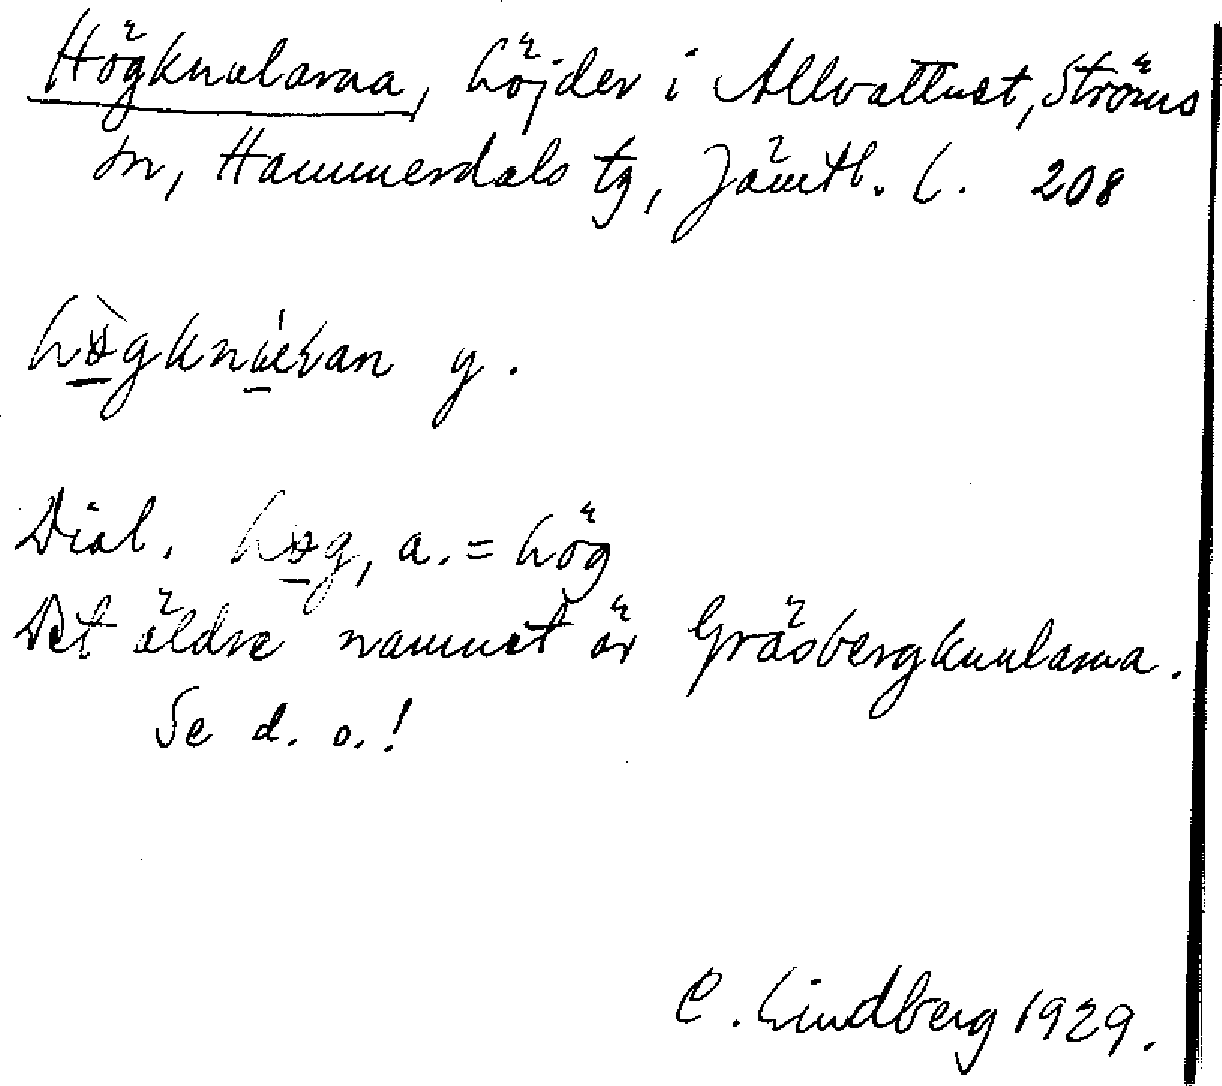 Högknularna, höjder i Allvattnet, Ströms
sn, Hammerdals tg, Jämtl. l. 208
y.
Dial. høg, a. = hög
Det äldre namnet är Gräsbergknularna.
Se d. o.!
C. Lindberg 1929.